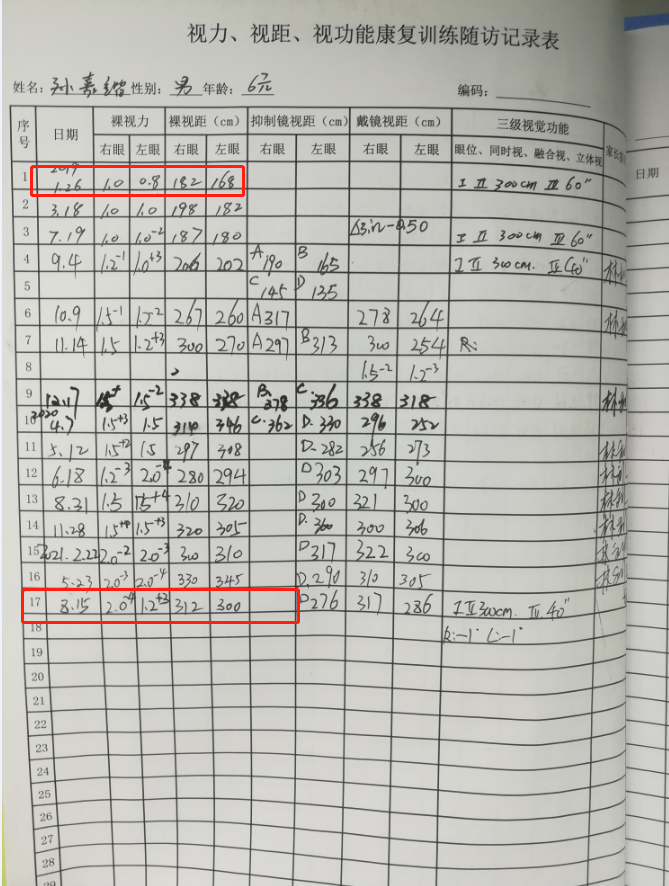 视力、视距、视功能康复训练随访记录表
姓名：孙嘉 性别：男 年龄：6 编码：
序号 日期 裸视力 裸视距（cm） 抑制镜视距（cm） 戴镜视距（cm） 三级视觉功能
右眼 左眼 右眼 左眼 右眼 左眼 右眼 左眼 眼位、同时视、融合视、立体视 日期
1 2019 1.26 1.0 0.8 182 168 I II 300cm III 60"
2 3.18 1.0 1.0 198 182
3 7.19 1.0 1.0-2 187 180 -0.50 I II 300cm III 60"
4 9.4 1.2-1 1.0+3 206 202 A190 B165 I II 300cm. III 40"
5 C145 D135
6 10.9 1.5-1 1.5-2 267 260 A317 278 264
7 11.14 1.5 1.2+3 300 270 A297 B313 300 254 R:
8 1.5-2 1.2-3
9 12.17 1.5+ 1.5-2 338 338 B.378 C.336 338 318
10 2020 4.7 1.5+3 1.5 310 346 C.362 D.330 296 252
11 5.12 1.5+2 1.5 297 308 D.282 256 273
12 6.18 1.2-3 2.0-4 280 294 D303 297 300
13 8.31 1.5 1.5+4 310 320 D300 321 300
14 11.28 1.5+4 1.5+3 320 305 D.300 300 306
15 2021.2.22 2.0-2 2.0-3 300 310 D317 322 300
16 5.23 2.0-3 2.0-4 330 345 D.290 310 305
17 8.15 2.0-4 1.2+3 312 300 D276 317 286 I II 300cm. III 40"
18 R:-1° L:-1°
19
20
21
22
23
24
25
26
27
28